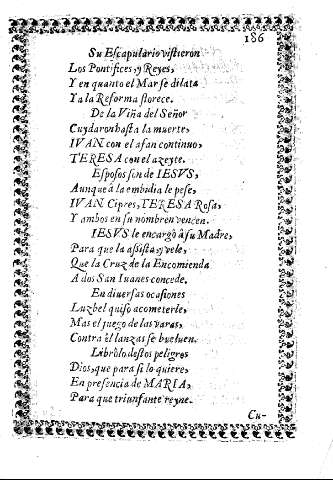 186
Su Escapulario vistieron
Los Pontifices, y Reyes,
Y en quanto el Mar se dilata
Ya la Reforma florece.
De la Viña del Señor
Cuydaron hasta la muerte,
IVAN con el afan continuo,
TERESA con el azeyte.
Esposos son de IESVS,
Aunque â la embidia le pese,
IVAN Cipres, TERESA Rosa,
Y ambos en su nombre vencen.
IESVS le encargò â su Madre,
Para que la assista, y vele,
Que la Cruz de la Encomienda
A dos San Iuanes concede.
En diuersas ocasiones
Luzbel quiso acometerle,
Mas el juego de las varas,
Contra êl lanzas se bueluen.
Libròlo destos peligros
Dios, que para si lo quiere,
En presencia de MARIA,
Para que triunfante reyne.
Cu-